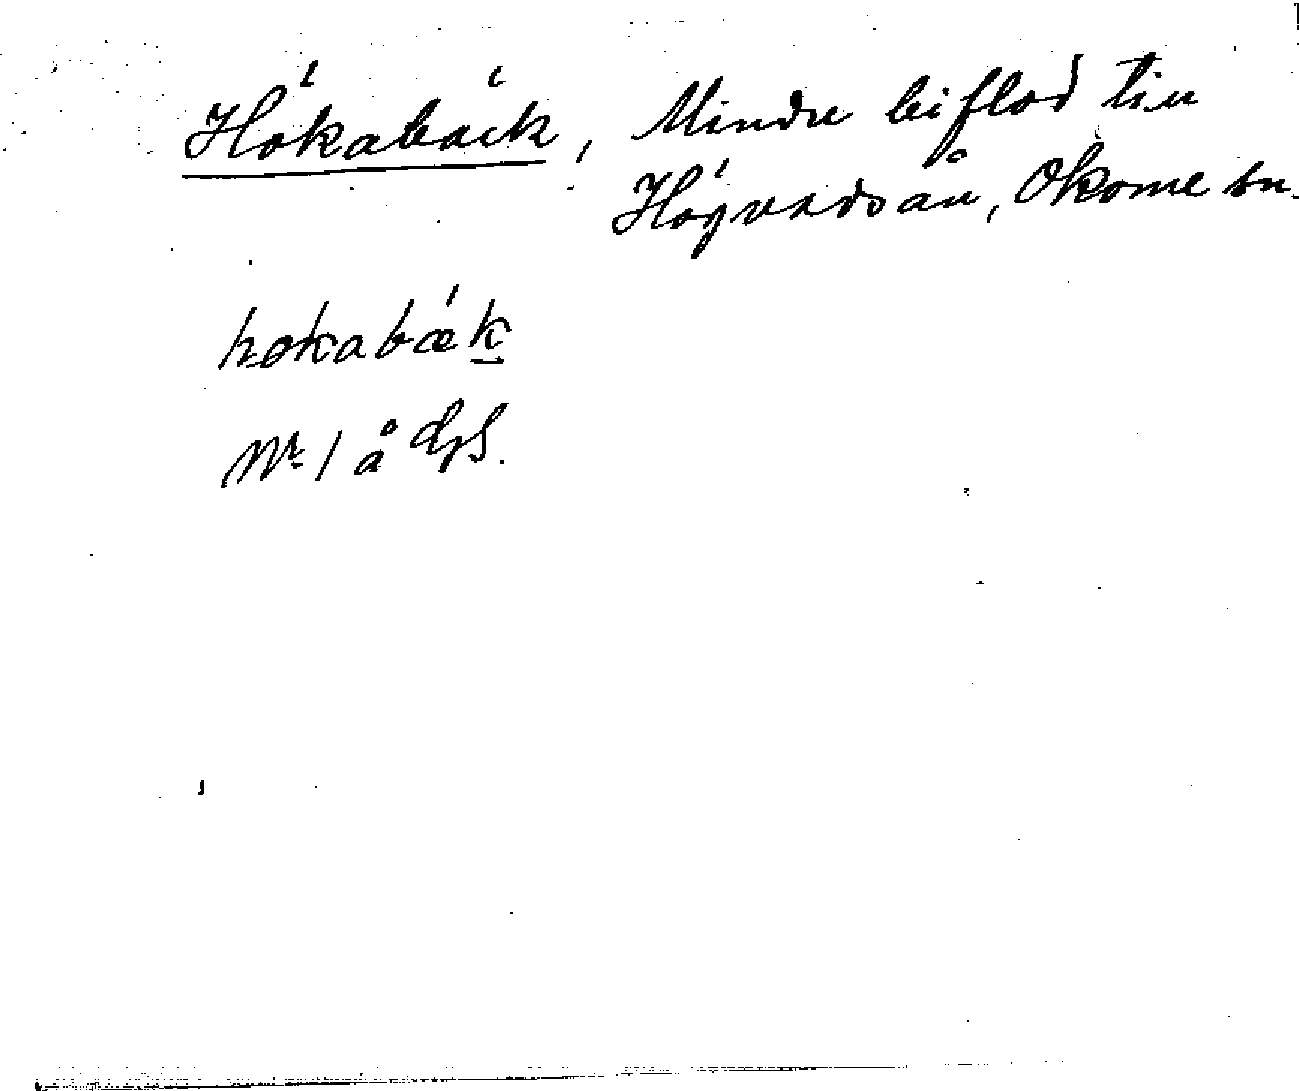 Hökabäck, Mindre biflod till
Högvadsån, Okome sn.
høkabæk
Nr 1 å GS.